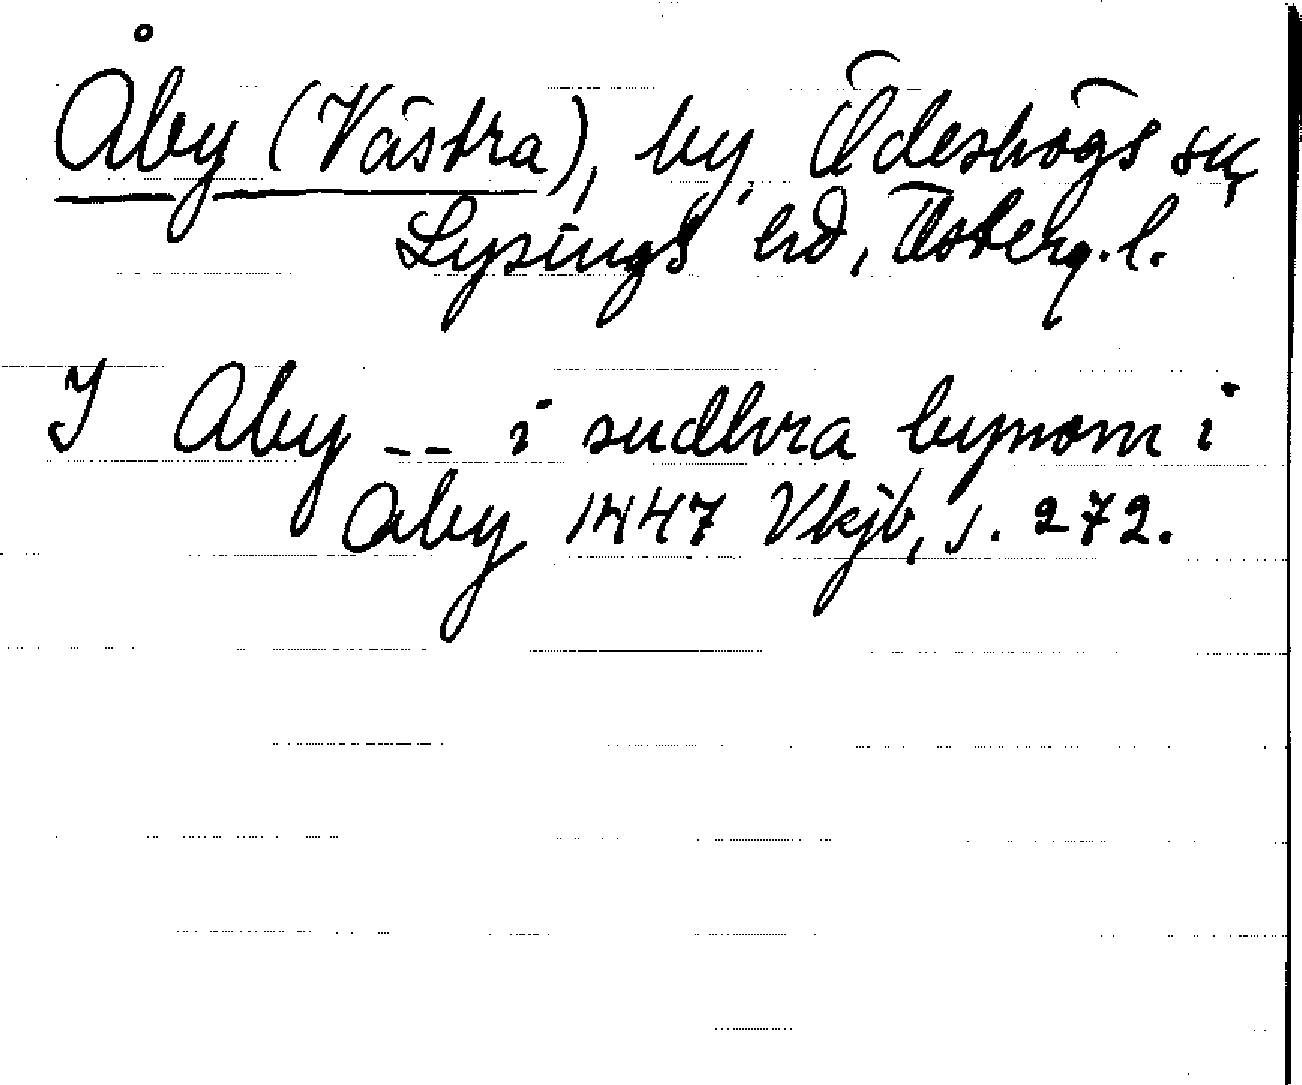 Åby (Västra), by, Ödeshögs sn,
Lysings hd, Österg. l.
I Aby -- i sudhra bynom i
Aby 1447 Vkjb, s. 272.